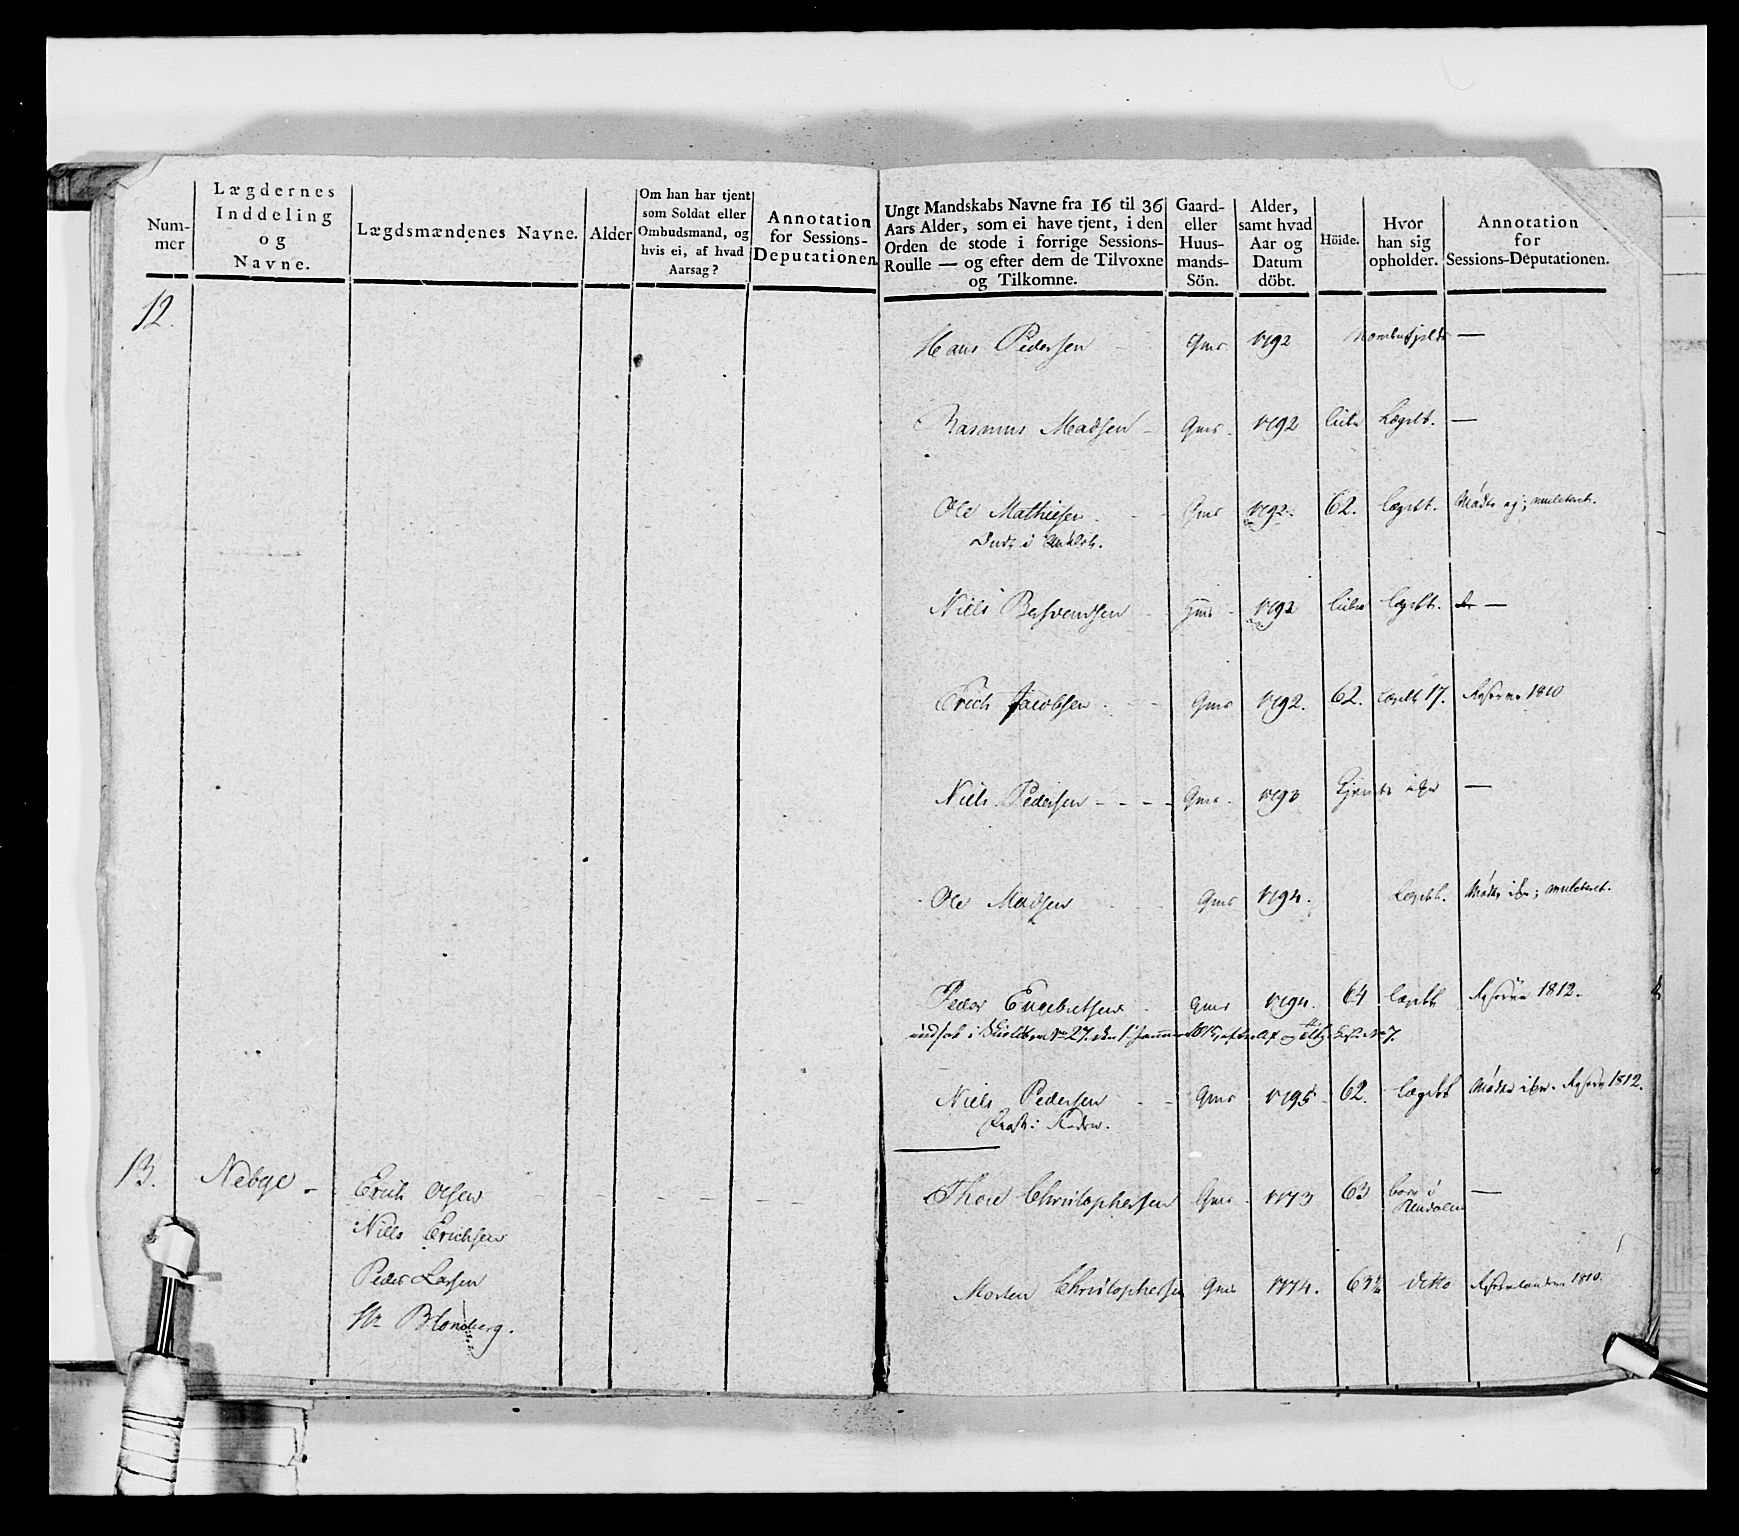 Num-
mer
Lægdernes
Inddeling
og
Navne.
Lægdsmændenes Navne.
Alder
Om han har tjent
som Soldat eller
Ombudsmand, og
hvis ei, af hvad
Aarsag?
Annotation
for Sessions-
Deputationen.
Ungt Mandskabs Navne fra 16 til 36
Aars Alder, som ei have tjent, i den
Orden de stode i forrige Sessions-
Roulle — og efter dem de Tilvoxne
og Tilkomne.
Gaard-
eller
Huus-
mands-
Sön.
Alder,
samt hvad
Aar og
Datum
döbt.
Höide.
Hvor
han sig
opholder.
Annotation
for
Sessions-Deputationen.
12.
Hans Pedersen Gms 1792 —
Rasmus Madsen Gms 1792 Lægdt. —
Ole Mathiesen Gms 1792. 62. Lægdt. Mödte ej; mulcteret.
Niels Gms 1792 Lægdt. —
Erich Jacobsen Gms 1792. 62. 17. Reserve 1810
Niels Pedersen Gms 1793 —
Ole Madsen Gms 1794. Lægdt. Mödte ; mulcteret.
Peder Engebretsen Gms 1794. 64 Lægdt Reserve 1812.
No 27. den 1 No 7.
Niels Pedersen Gms 1795 62. Lægdt Mödte Reserve 1812.
13. Nebye Erich Olsen Thore Christophersen Gms 1773 63 i —
Rendalen
Niels Erichsen
Peder Larsen Morten Christophersen Gms 1774. 63½ ditto 1810.
Hr Blomberg.